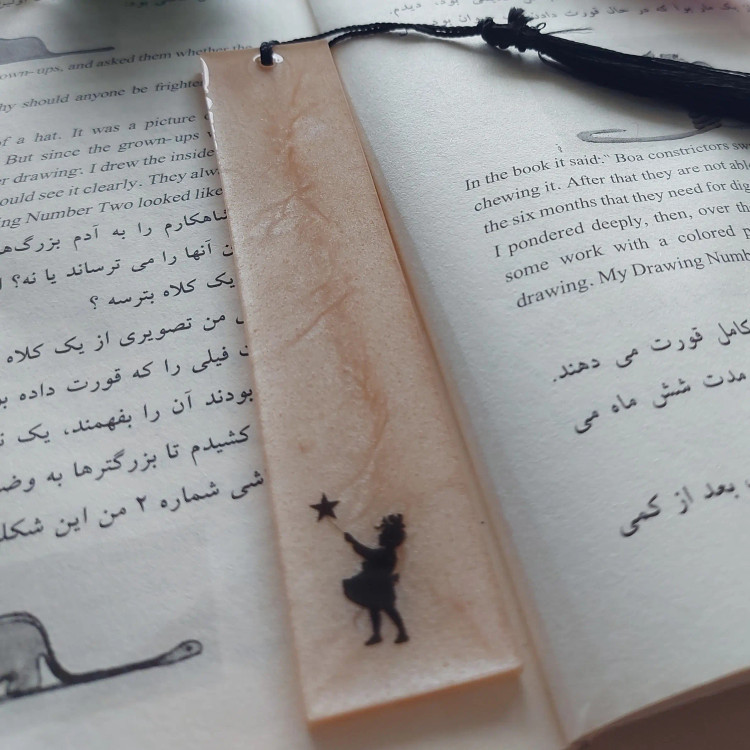 own-ups, and asked them whether the
hy should anyone be frighte
of a hat. It was a picture
But since the grown-ups
r drawing: I drew the inside
ould see it clearly. They alw
ing Number Two looked like
شاهکارم را به آدم بزرگ‌ه
ن آنها را می ترساند یا نه؟
یک کلاه بترسه ؟
من تصویری از یک کلاه
فیلی را که قورت داده
بودند آن را بفهمند. یک
کشیدم تا بزرگترها به وض
شی شماره ۲ من این شکل
بود. دیدم.
یک مار بوآ که در حال قورت
In the book it said:" Boa constrictors sw
chewing it. After that they are not able
the six months that they need for dig
I pondered deeply, then, over th
some work with a colored p
drawing. My Drawing Numb
کامل قورت می دهند.
مدت شش ماه می
بعد از کمی